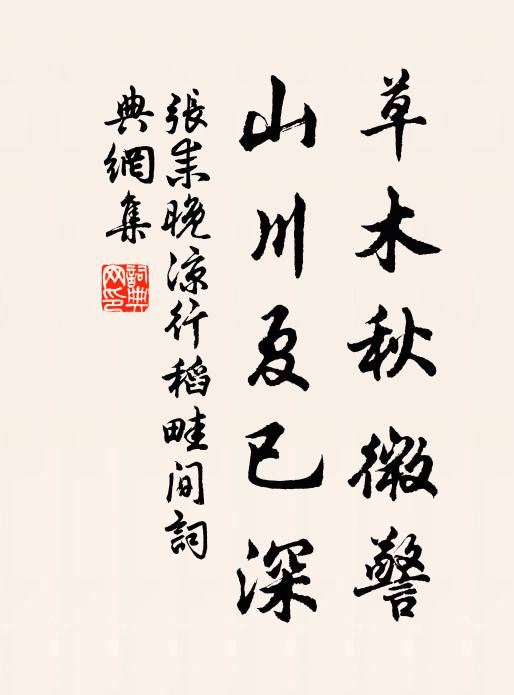 草木秋微警
山川夏已深
張耒晚涼行稻畦間詞
典網集
詞典
网印